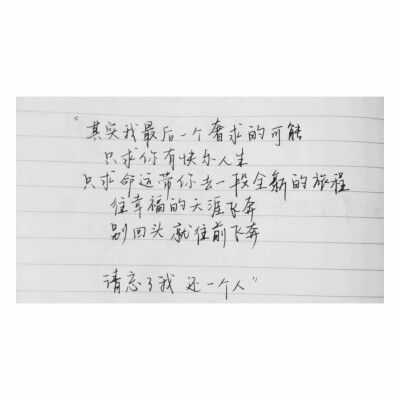 “其实我最后一个奢求的可能
只求你有快乐人生
只求命运带你去一段全新的旅程
往幸福的天涯飞奔
别回头就往前飞奔
请忘了我 还一个人”